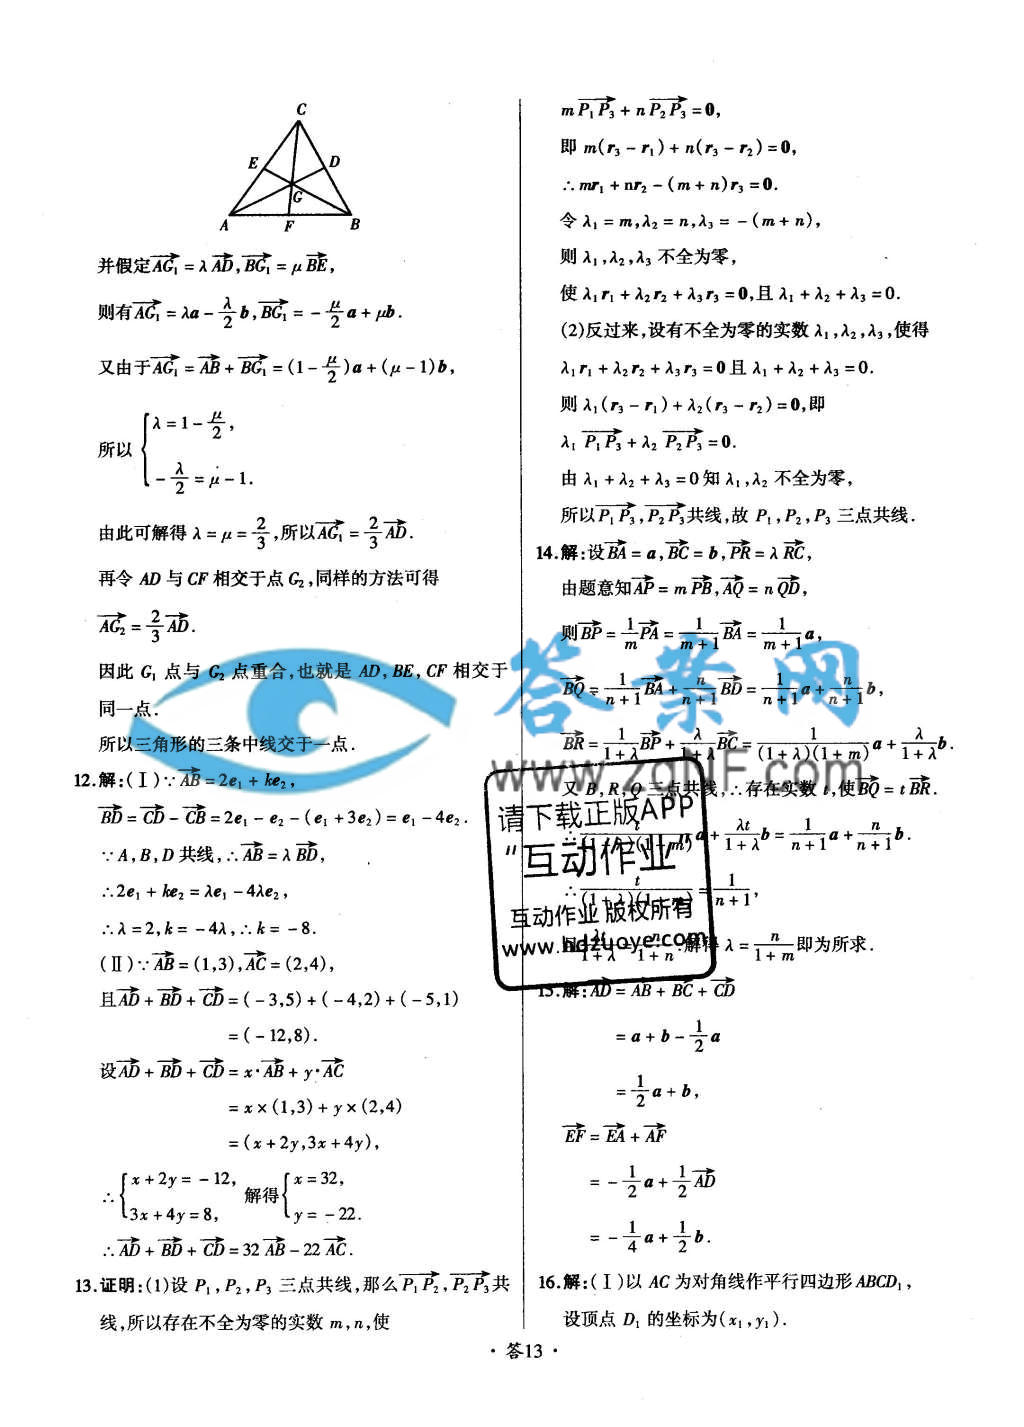 C
E D
G
A F B
并假定$\overrightarrow{AG_1}=\lambda\overrightarrow{AD},\overrightarrow{BG_1}=\mu\overrightarrow{BE}$,
则有$\overrightarrow{AG_1}=\lambda a-\frac{\lambda}{2}b,\overrightarrow{BG_1}=-\frac{\mu}{2}a+\mu b$.
又由于$\overrightarrow{AG_1}=\overrightarrow{AB}+\overrightarrow{BG_1}=(1-\frac{\mu}{2})a+(\mu-1)b$,
所以$\begin{cases}\lambda=1-\frac{\mu}{2},\\-\frac{\lambda}{2}=\mu-1.\end{cases}$
由此可解得$\lambda=\mu=\frac{2}{3}$,所以$\overrightarrow{AG_1}=\frac{2}{3}\overrightarrow{AD}$.
再令 AD 与 CF 相交于点$G_2$,同样的方法可得
$\overrightarrow{AG_2}=\frac{2}{3}\overrightarrow{AD}$.
因此 $G_1$ 点与 $G_2$ 点重合,也就是 AD,BE,CF 相交于
同一点.
所以三角形的三条中线交于一点.
12.解:(Ⅰ)∵$\overrightarrow{AB}=2e_1+ke_2$,
$\overrightarrow{BD}=\overrightarrow{CD}-\overrightarrow{CB}=2e_1-e_2-(e_1+3e_2)=e_1-4e_2$.
∵A,B,D 共线,∴$\overrightarrow{AB}=\lambda\overrightarrow{BD}$,
∴$2e_1+ke_2=\lambda e_1-4\lambda e_2$,
∴$\lambda=2,k=-4\lambda$,∴$k=-8$.
(Ⅱ)∵$\overrightarrow{AB}=(1,3),\overrightarrow{AC}=(2,4)$,
且$\overrightarrow{AD}+\overrightarrow{BD}+\overrightarrow{CD}=(-3,5)+(-4,2)+(-5,1)$
$=(-12,8)$.
设$\overrightarrow{AD}+\overrightarrow{BD}+\overrightarrow{CD}=x\cdot\overrightarrow{AB}+y\cdot\overrightarrow{AC}$
$=x\times(1,3)+y\times(2,4)$
$=(x+2y,3x+4y)$,
∴$\begin{cases}x+2y=-12,\\3x+4y=8,\end{cases}$ 解得$\begin{cases}x=32,\\y=-22.\end{cases}$
∴$\overrightarrow{AD}+\overrightarrow{BD}+\overrightarrow{CD}=32\overrightarrow{AB}-22\overrightarrow{AC}$.
13.证明:(1)设 $P_1,P_2,P_3$ 三点共线,那么$\overrightarrow{P_1P_2},\overrightarrow{P_2P_3}$共
线,所以存在不全为零的实数 m,n,使
$m\overrightarrow{P_1P_3}+n\overrightarrow{P_2P_3}=0$,
即 $m(r_3-r_1)+n(r_3-r_2)=0$,
∴$mr_1+nr_2-(m+n)r_3=0$.
令 $\lambda_1=m,\lambda_2=n,\lambda_3=-(m+n)$,
则 $\lambda_1,\lambda_2,\lambda_3$ 不全为零,
使 $\lambda_1r_1+\lambda_2r_2+\lambda_3r_3=0$,且 $\lambda_1+\lambda_2+\lambda_3=0$.
(2)反过来,设有不全为零的实数 $\lambda_1,\lambda_2,\lambda_3$,使得
$\lambda_1r_1+\lambda_2r_2+\lambda_3r_3=0$ 且 $\lambda_1+\lambda_2+\lambda_3=0$.
则 $\lambda_1(r_3-r_1)+\lambda_2(r_3-r_2)=0$,即
$\lambda_1\overrightarrow{P_1P_3}+\lambda_2\overrightarrow{P_2P_3}=0$.
由 $\lambda_1+\lambda_2+\lambda_3=0$ 知 $\lambda_1,\lambda_2$ 不全为零,
所以$\overrightarrow{P_1P_3},\overrightarrow{P_2P_3}$共线,故 $P_1,P_2,P_3$ 三点共线.
14.解:设$\overrightarrow{BA}=a,\overrightarrow{BC}=b,\overrightarrow{PR}=\lambda\overrightarrow{RC}$,
由题意知$\overrightarrow{AP}=m\overrightarrow{PB},\overrightarrow{AQ}=n\overrightarrow{QD}$,
则$\overrightarrow{BP}=\frac{1}{m}\overrightarrow{PA}=\frac{1}{m+1}\overrightarrow{BA}=\frac{1}{m+1}a$,
$\overrightarrow{BQ}=\frac{1}{n+1}\overrightarrow{BA}+\frac{n}{n+1}\overrightarrow{BD}=\frac{1}{n+1}a+\frac{n}{n+1}b$,
$\overrightarrow{BR}=\frac{1}{1+\lambda}\overrightarrow{BP}+\frac{\lambda}{1+\lambda}\overrightarrow{BC}=\frac{1}{(1+\lambda)(1+m)}a+\frac{\lambda}{1+\lambda}b$.
又 B,R,Q 三点共线,∴存在实数 t,使$\overrightarrow{BQ}=t\overrightarrow{BR}$.
∴$\frac{t}{(1+\lambda)(1+m)}a+\frac{\lambda t}{1+\lambda}b=\frac{1}{n+1}a+\frac{n}{n+1}b$.
∴$\frac{t}{(1+\lambda)(1+m)}=\frac{1}{n+1}$,
且$\frac{\lambda t}{1+\lambda}=\frac{n}{1+n}$.解得 $\lambda=\frac{n}{1+m}$即为所求.
15.解:$\overrightarrow{AD}=\overrightarrow{AB}+\overrightarrow{BC}+\overrightarrow{CD}$
$=a+b-\frac{1}{2}a$
$=\frac{1}{2}a+b$,
$\overrightarrow{EF}=\overrightarrow{EA}+\overrightarrow{AF}$
$=-\frac{1}{2}a+\frac{1}{2}\overrightarrow{AD}$
$=-\frac{1}{4}a+\frac{1}{2}b$.
16.解:(Ⅰ)以 AC 为对角线作平行四边形 $ABCD_1$,
设顶点 $D_1$ 的坐标为$(x_1,y_1)$.
·答13·
答案网
请下载正版APP
"互动作业"
互动作业 版权所有
www.hdzuoye.com